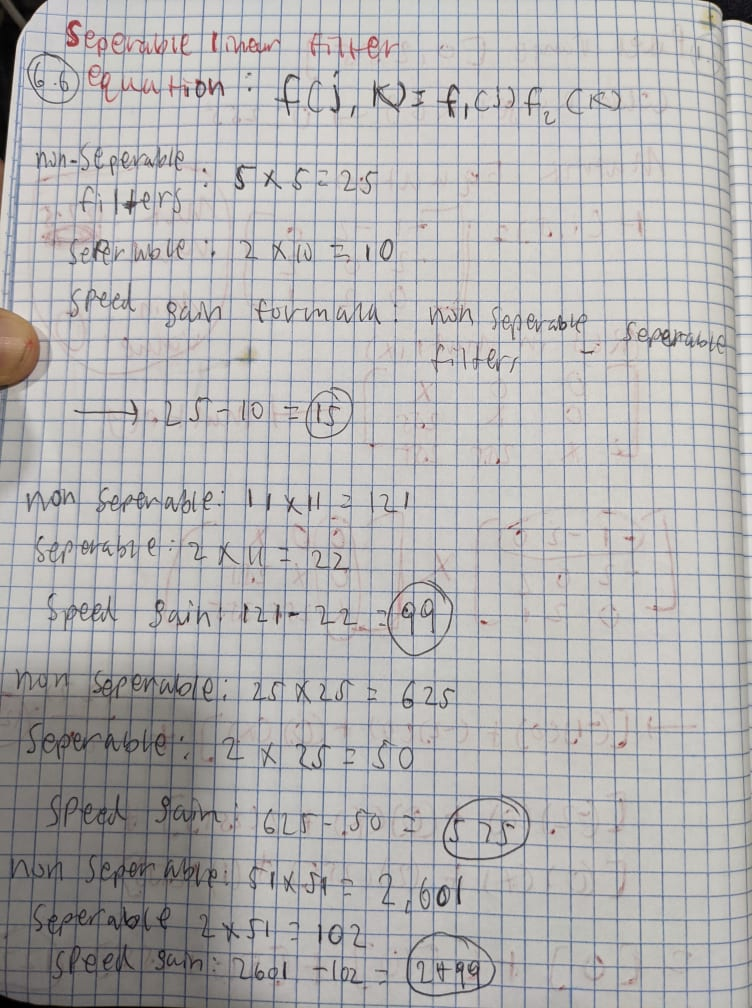 Seperable linear filter
6.6 equation : f(j, K) = f₁(j) f₂(K)
non-seperable : 5 × 5 = 25
filters
seperable : 2 × 10 = 10
speed gain formala : non seperable - seperable
filters
→ 25 - 10 = 15
non seperable : 11 × 11 = 121
seperable : 2 × 11 = 22
speed gain : 121 - 22 = 99
non seperable : 25 × 25 = 625
seperable : 2 × 25 = 50
speed gain : 625 - 50 = 575
non seperable : 51 × 51 = 2,601
seperable 2 × 51 = 102
speed gain : 2601 - 102 = 2499